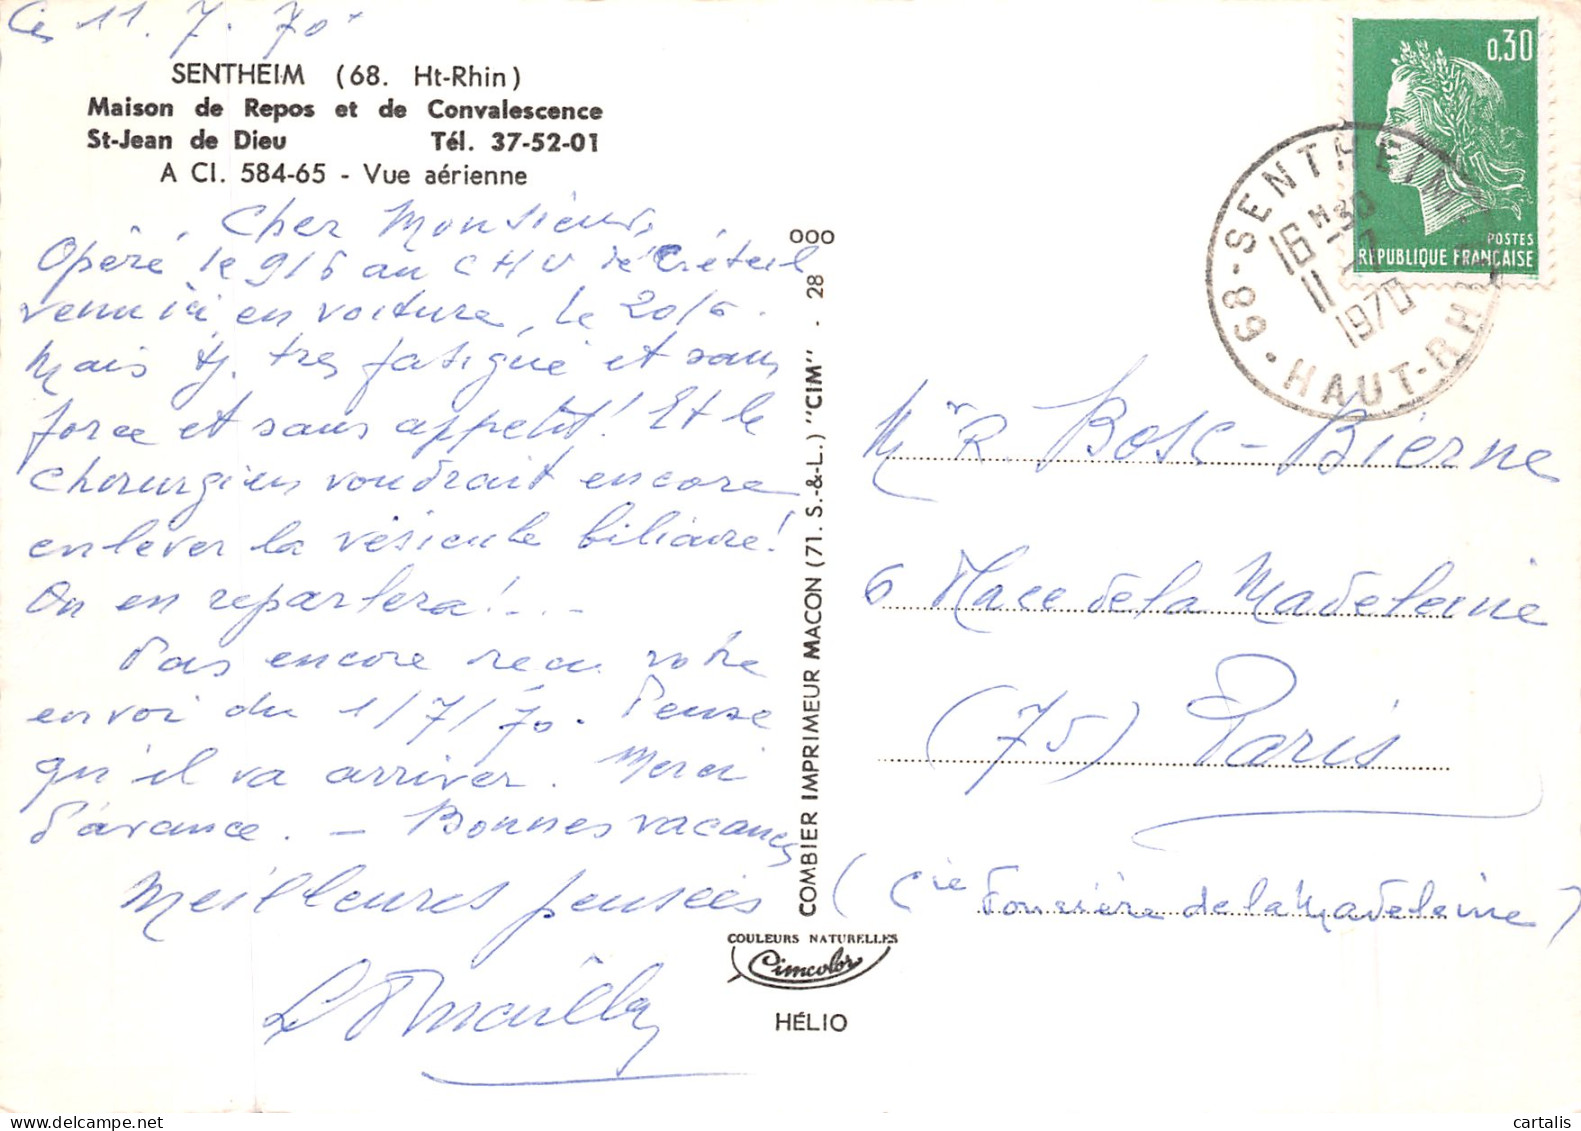 Ce 11. 7. 70.
SENTHEIM (68. Ht-Rhin)
Maison de Repos et de Convalescence
St-Jean de Dieu Tél. 37-52-01
A CI. 584-65 - Vue aérienne
Cher Monsieur,
Opéré le 9/6 au CHU de Créteil
venu ici en voiture, le 20/6.
Mais tj. très fatigué et sans
force et sans appetit! Et le
chirurgien voudrait encore
enlever la vésicule biliaire!
On en reparlera!...
Pas encore recu votre
envoi du 1/7/70. Pense
qu'il va arriver. Merci
d'avance. - Bonnes vacances
Meilleures pensées
000
COMBIER IMPRIMEUR MACON (71. S.-&-L.) "CIM" - 28
COULEURS NATURELLES
Cimcolor
HÉLIO
0,30
POSTES
RÉPUBLIQUE FRANÇAISE
68-SENTHEIM
16H30
11-7
1970
HAUT-RHIN
Mr R. Bosc-Bierne
6 Place de la Madeleine
(75) Paris
(Cie Foncière de la Madeleine)
delcampe.net
cartalis